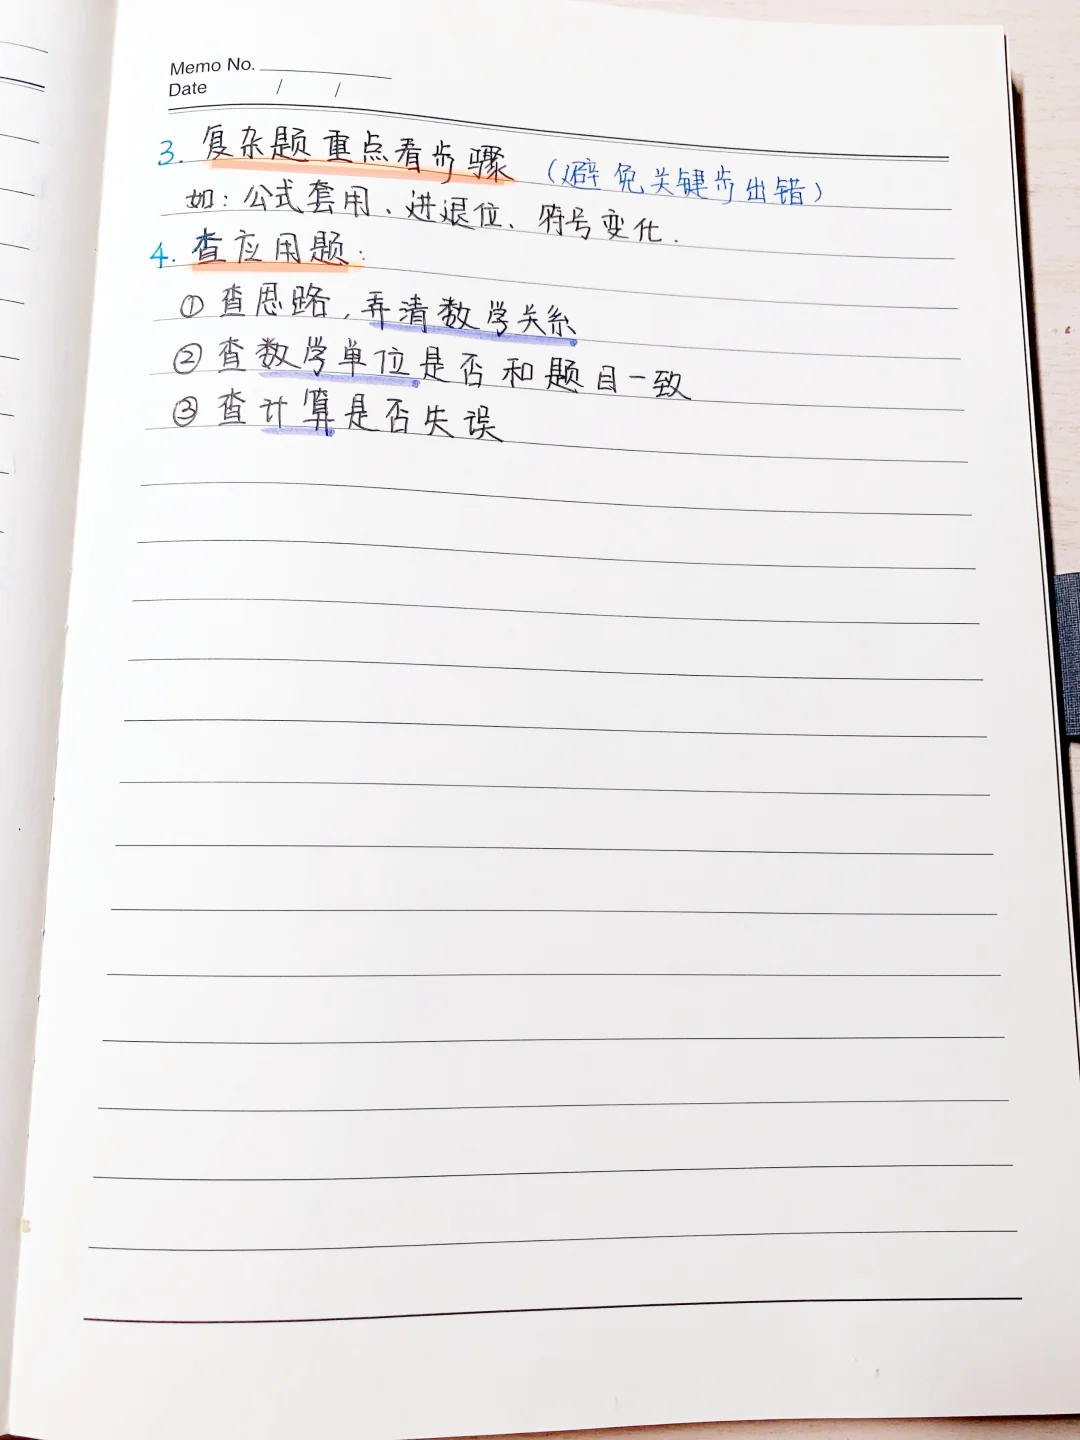 Memo No.
Date / /
3. 复杂题重点看步骤 (避免关键步出错)
如：公式套用、进退位、符号变化.
4. 查应用题：
① 查思路，弄清数学关系
② 查数学单位是否和题目一致
③ 查计算是否失误